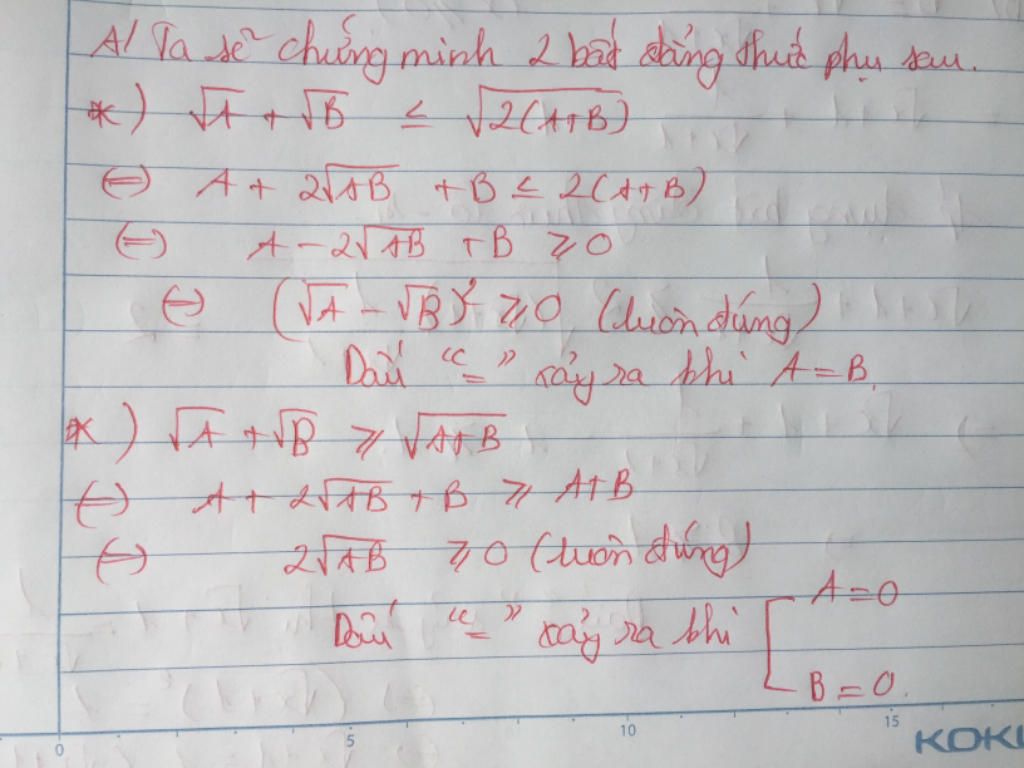 A/ Ta sẽ chứng minh 2 bất đẳng thức phụ sau.
*) √A + √B ≤ √2(A+B)
⇔ A + 2√AB + B ≤ 2(A+B)
⇔ A - 2√AB + B ≥ 0
⇔ (√A - √B)² ≥ 0 (luôn đúng)
Dấu "=" xảy ra khi A = B.
*) √A + √B ≥ √A+B
⇔ A + 2√AB + B ≥ A+B
⇔ 2√AB ≥ 0 (luôn đúng)
Dấu "=" xảy ra khi [ A = 0
B = 0.
0 5 10 15